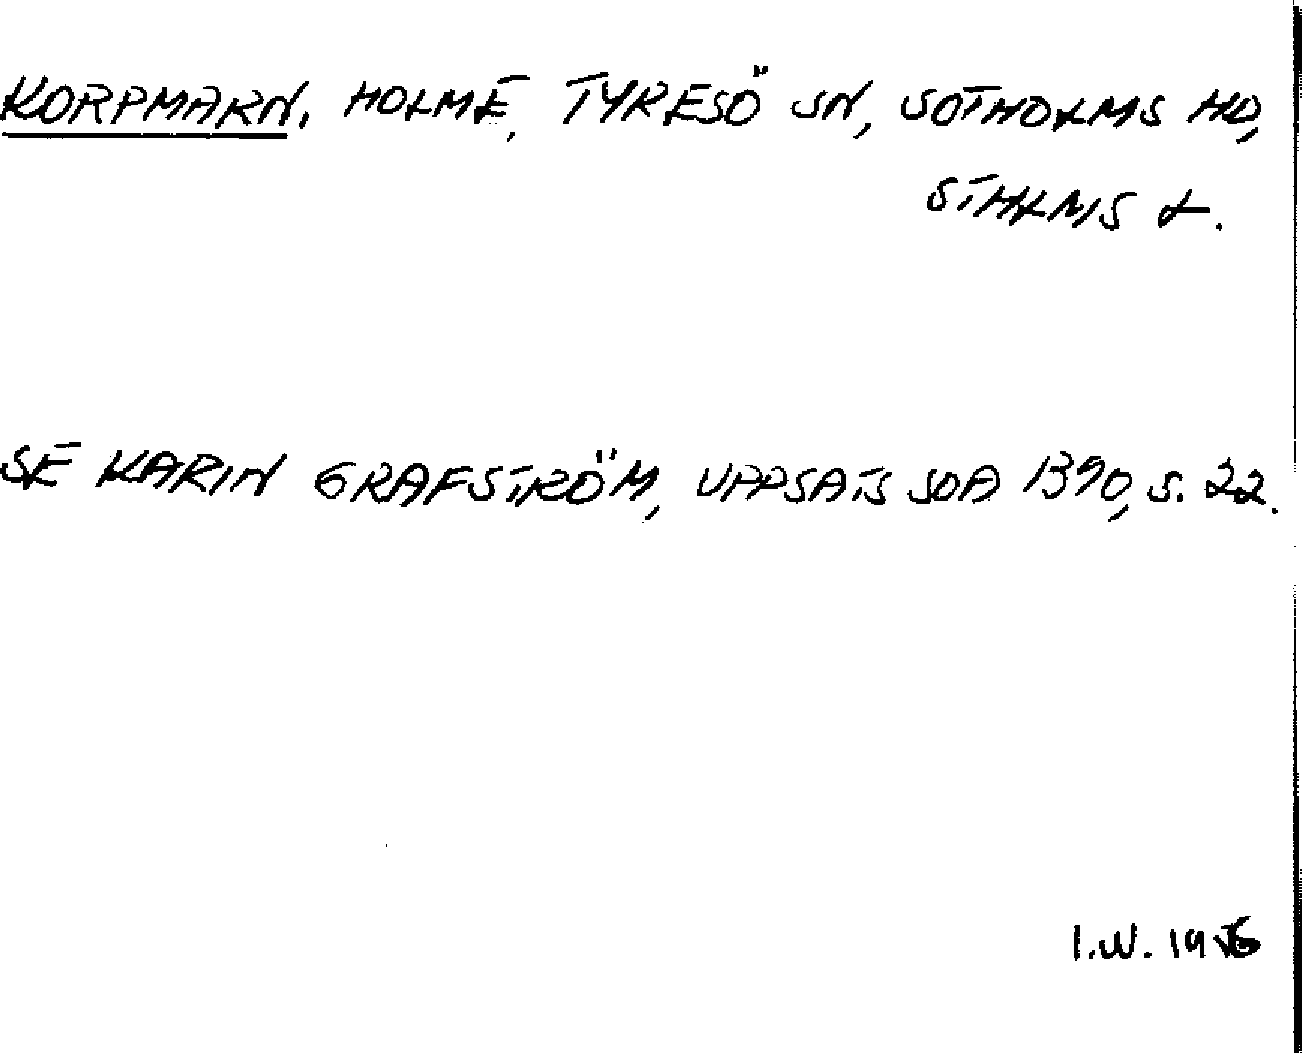 KORPMARN, HOLME, TYRESÖ SN, SOTHOLMS HD,
STHLMS L.
SE KARIN GRAFSTRÖM, UPPSATS SOA 1390, S. 22.
I.W. 19